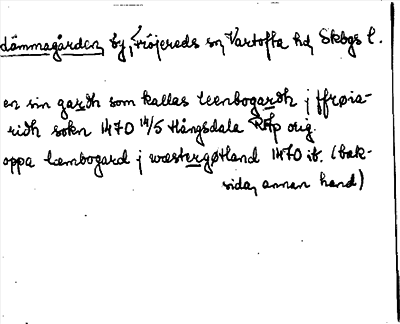 Lämmagården, by, Fröjereds sn, Vartofta hd, Skbgs l.
en sin gardh som kallas leenbogardh j ffrøia-
ridh sokn 1470 14/5 Hångsdala RAp orig.
oppa læmbogard j wæstergøtland 1470 ib. (bak-
sida, annan hand)